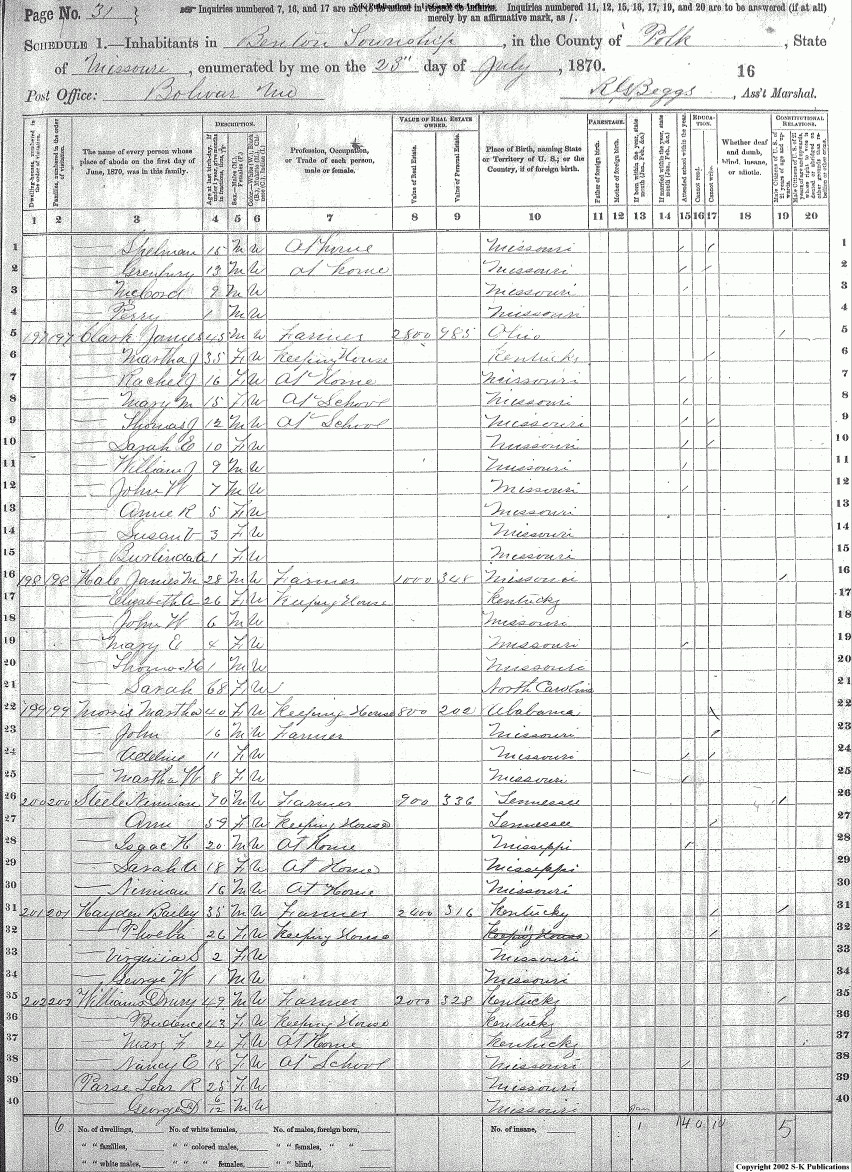 Page No. 31
Inquiries numbered 7, 16, and 17 are not to be asked in respect to infants. Inquiries numbered 11, 12, 15, 16, 17, 19, and 20 are to be answered (if at all)
merely by an affirmative mark, as /.
SCHEDULE 1.—Inhabitants in Benton Township, in the County of Polk, State
of Missouri, enumerated by me on the 23" day of July, 1870.
16
Post Office: Bolivar Mo R G Beggs, Ass't Marshal.
DESCRIPTION. VALUE OF REAL ESTATE OWNED. PARENTAGE. EDUCATION. CONSTITUTIONAL RELATIONS.
The name of every person whose place of abode on the first day of June, 1870, was in this family.
Profession, Occupation, or Trade of each person, male or female.
Value of Real Estate.
Value of Personal Estate.
Place of Birth, naming State or Territory of U. S.; or the Country, if of foreign birth.
Father of foreign birth.
Mother of foreign birth.
Attended school within the year.
Cannot read.
Cannot write.
Whether deaf and dumb, blind, insane, or idiotic.
1 2 3 4 5 6 7 8 9 10 11 12 13 14 15 16 17 18 19 20
1 — Shelman 15 M W At home Missouri / / 1
2 — Grenbury 13 M W at home Missouri / / 2
3 — McCord 9 M W Missouri / 3
4 — Perry 1 M W Missouri 4
5 197 197 Clark James 45 M W Farmer 2800 985 Ohio / 5
6 — Martha J 35 F W Keeping House Kentucky / 6
7 — Rachel J 16 F W At Home Missouri / 7
8 — Mary M 15 F W At School Missouri / 8
9 — Thomas J 12 M W At School Missouri / / 9
10 — Sarah E 10 F W Missouri / / 10
11 — William J 9 M W Missouri / 11
12 — John W 7 M W Missouri / 12
13 — Anne R 5 F W Missouri 13
14 — Susan V 3 F W Missouri 14
15 — Burlinda A 1 F W Missouri 15
16 198 198 Hale James M 28 M W Farmer 1000 348 Missouri / 16
17 — Elizabeth A 26 F W Keeping House Kentucky 17
18 — John W 6 M W Missouri 18
19 — Mary E 4 F W Missouri / 19
20 — Thomas H 1 M W Missouri 20
21 — Sarah 68 F W North Carolina 21
22 199 199 Morris Martha 40 F W Keeping House 800 202 Alabama \ 22
23 — John 16 M W Farmer Missouri / 23
24 — Adeline 11 F W Missouri / / 24
25 — Martha W 8 F W Missouri / 25
26 200 200 Steele Ninnian 70 M W Farmer 900 336 Tennessee / 26
27 — Ann 59 F W Keeping House Tennessee / 27
28 — Isaac H 20 M W At Home Misseppi / 28
29 — Sarah A 18 F W At Home Misseppi 29
30 — Ninnian 16 M W At Home Missouri 30
31 201 201 Hayden Bailey 35 M W Farmer 2400 316 Kentucky / / 31
32 — Phoeba 26 F W Keeping House Keeping House / 32
33 — Virginia S 2 F W Missouri 33
34 — George W 1 M W Missouri 34
35 202 202 Williams Drury 49 M W Farmer 2000 328 Kentucky / 35
36 — Prudence 43 F W Keeping House Kentucky 36
37 — Mary F 24 F W At Home Kentucky 37
38 — Nancy E 18 F W At School Missouri / 38
39 Parse Lear R 25 F W Missouri 39
40 — George D 6/12 M W Missouri Jan 40
6 No. of dwellings, No. of white females, No. of males, foreign born, No. of insane, 1 14 0 14 5
" " families, " " colored males, " " females, " "
" " white males, " " " females, " " blind,
Copyright 2002 S-K Publications